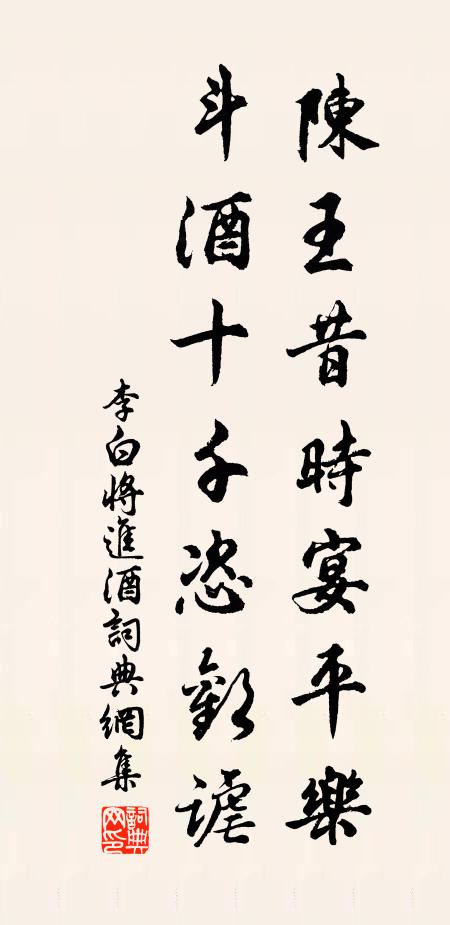 陳王昔時宴平樂
斗酒十千恣歡謔
李白將進酒詞典網集
詞典網印